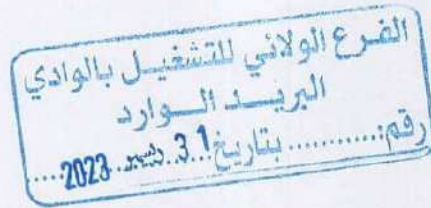 الفرع الولائي للتشغيل بالوادي
البريد الوارد
رقم:............ بتاريخ 31 ديسمبر 2023